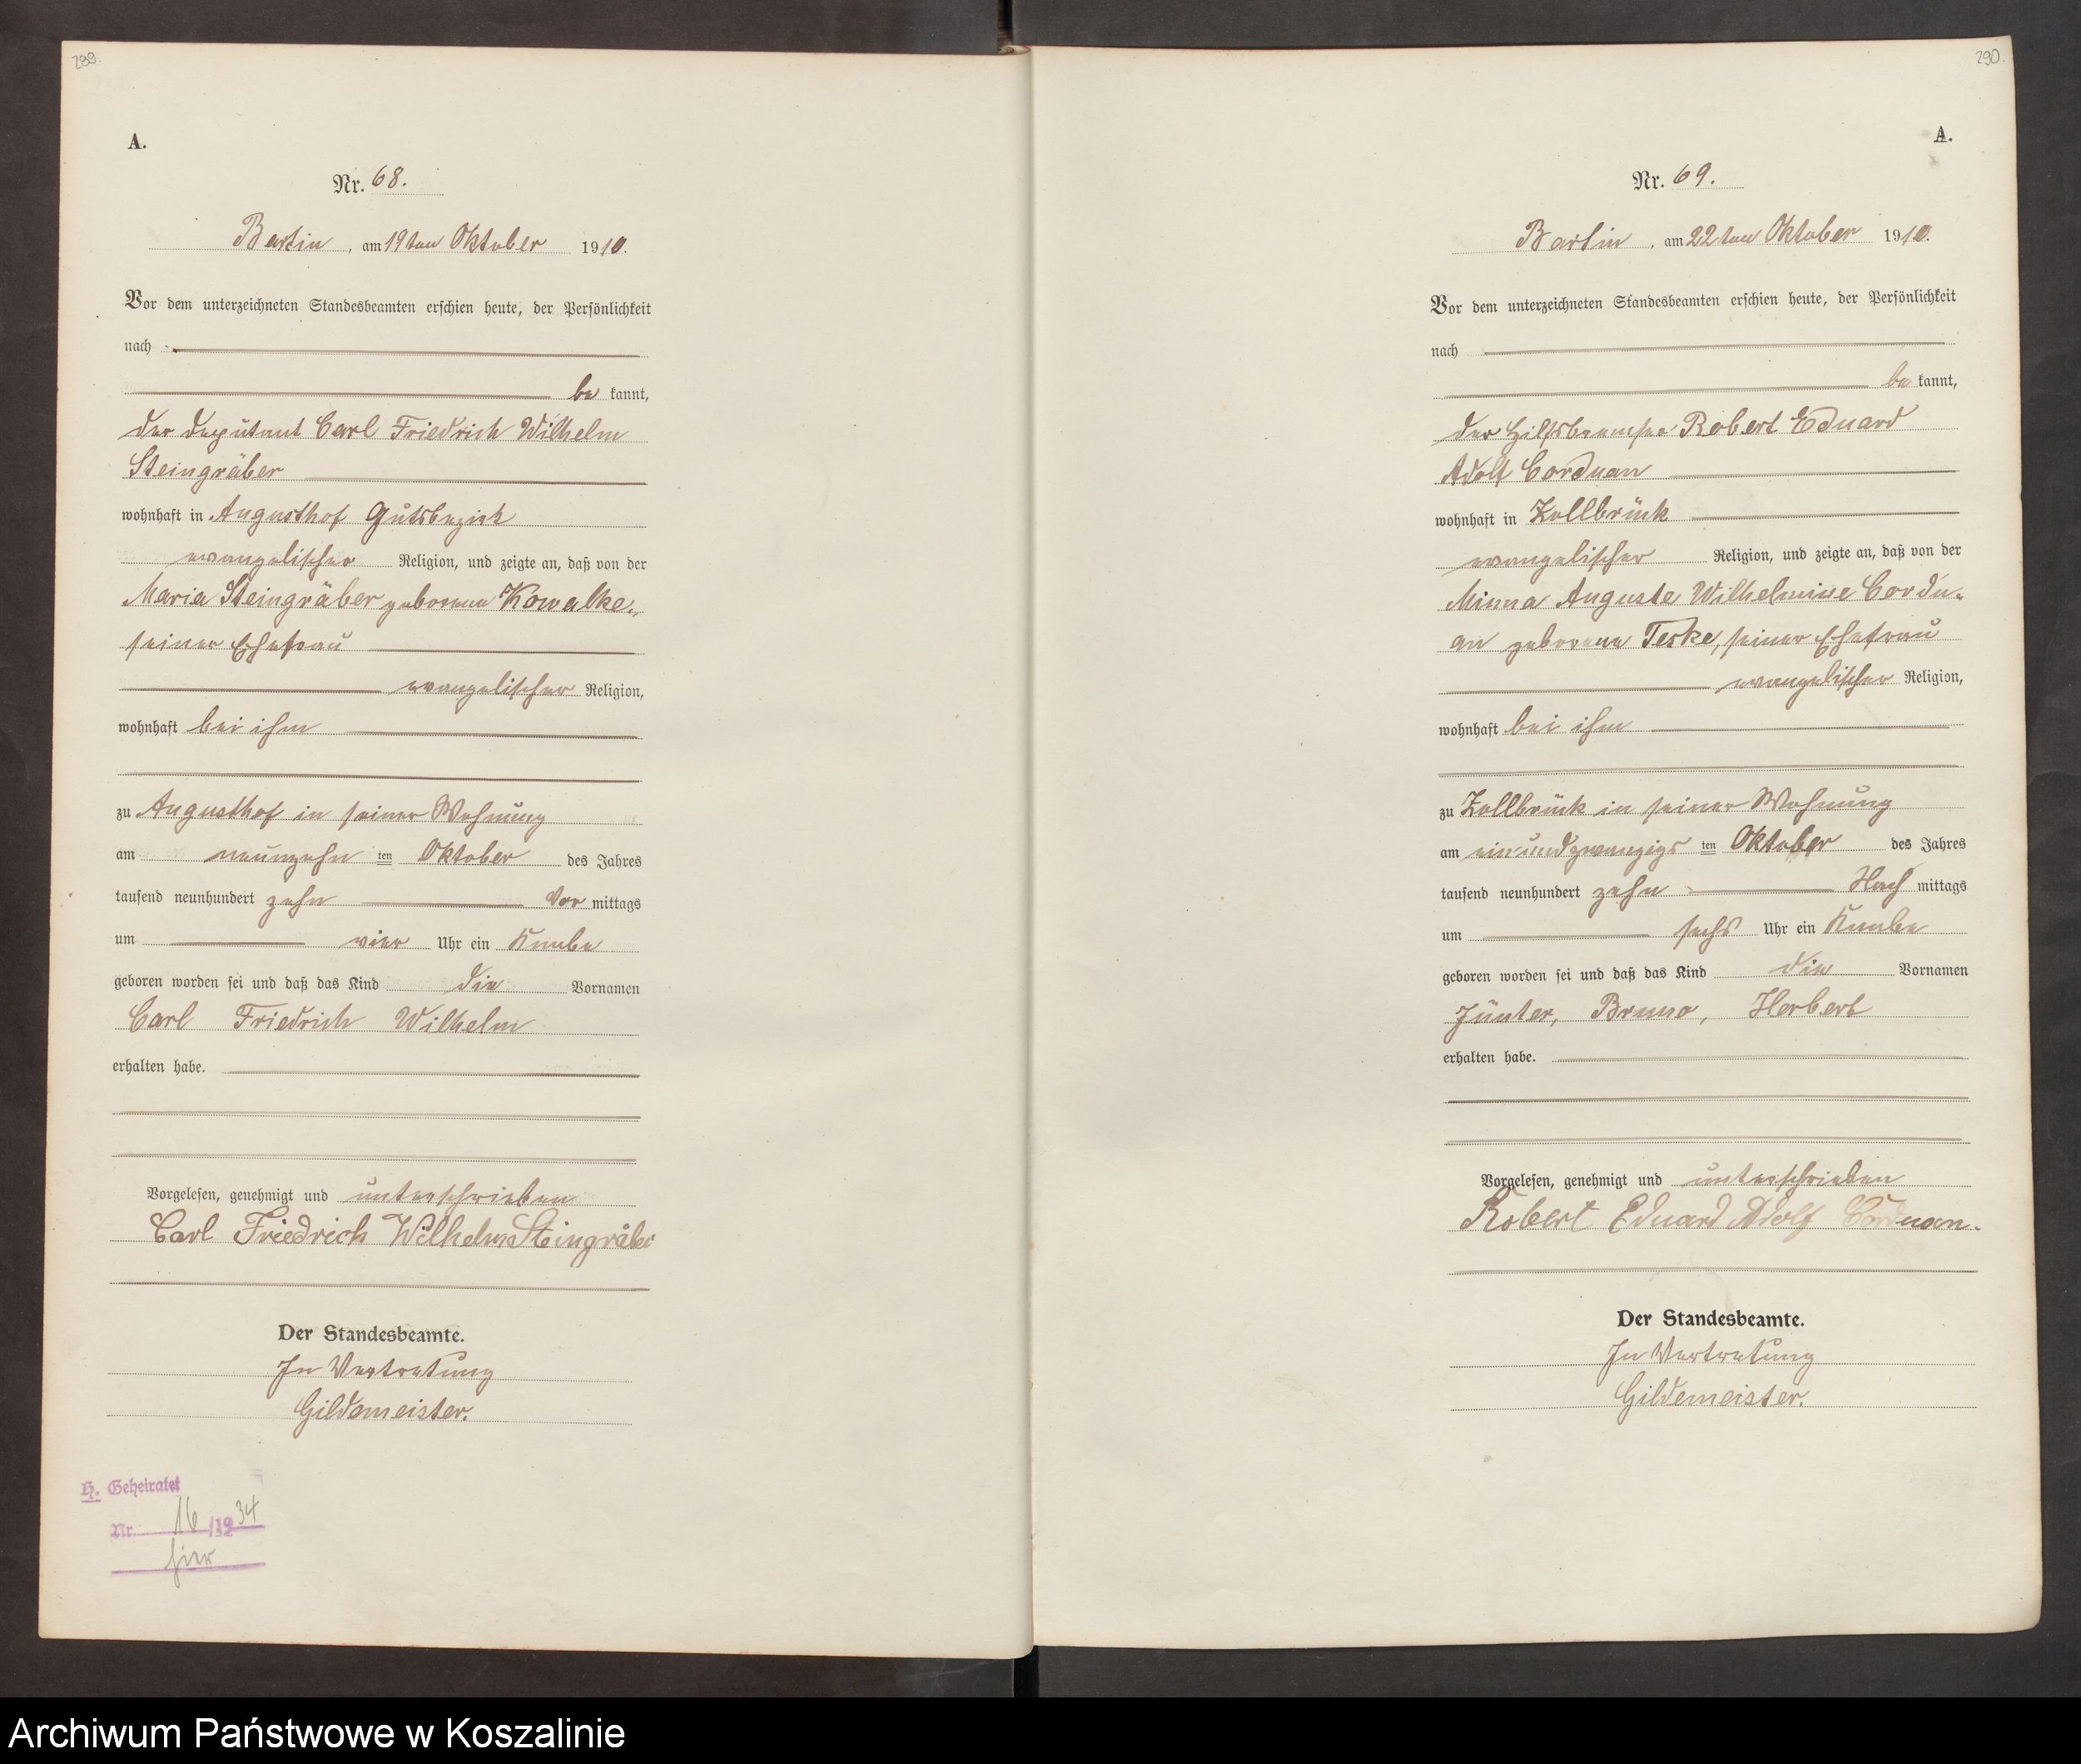 289.
A.
Nr. 68.
Bartin, am 19ten Oktober 1910.
Vor dem unterzeichneten Standesbeamten erschien heute, der Persönlichkeit
nach
be kannt,
der Deputant Carl Friedrich Wilhelm
Steingräber
wohnhaft in Augusthof Gutsbezirk
evangelischer Religion, und zeigte an, daß von der
Maria Steingräber geborene Kowalke,
seiner Ehefrau
evangelischer Religion,
wohnhaft bei ihm
zu Augusthof in seiner Wohnung
am neunzehn ten Oktober des Jahres
tausend neunhundert zehn Vor mittags
um vier Uhr ein Knabe
geboren worden sei und daß das Kind die Vornamen
Carl Friedrich Wilhelm
erhalten habe.
Vorgelesen, genehmigt und unterschrieben
Carl Friedrich Wilhelm Steingräber
Der Standesbeamte.
In Vertretung
Gildemeister.
H. Geheiratet
Nr. 16/1934
hier
290.
A.
Nr. 69.
Bartin, am 22ten Oktober 1910.
Vor dem unterzeichneten Standesbeamten erschien heute, der Persönlichkeit
nach
be kannt,
der Hilfsbremser Robert Eduard
Adolf Corduan
wohnhaft in Zollbrück
evangelischer Religion, und zeigte an, daß von der
Minna Auguste Wilhelmine Cordu-
an geborene Teske, seiner Ehefrau
evangelischer Religion,
wohnhaft bei ihm
zu Zollbrück in seiner Wohnung
am einundzwanzigs ten Oktober des Jahres
tausend neunhundert zehn Nach mittags
um sechs Uhr ein Knabe
geboren worden sei und daß das Kind die Vornamen
Jünter, Bruno, Herbert
erhalten habe.
Vorgelesen, genehmigt und unterschrieben
Robert Eduard Adolf Corduan.
Der Standesbeamte.
In Vertretung
Gildemeister.
Archiwum Państwowe w Koszalinie